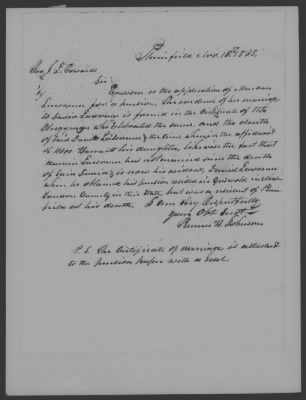 Plainfield Nov. 15th 1838.
Hon J. L. Edwards
Sir
Enclosed is the application of
Lawrence for a pension. The evidence of her marriage
to Lawrence is found in the Certificate of the
Clergyman who celebrated the same, and the death
of said Lawrence & the time when, in the affidavit
of Mrs. Barrett his daughter, likewise the fact that
Lawrence has not married since the death
of said & is now his widow, Lawrence
when he obtained his pension resided in Griswold in New
London County in this State, but was a resident of Plain
field at his death, I am Very Respectfully
your Obt Servt
Johnson
P. S. The Certificate of marriage is attached
to the pension paper with a seal.